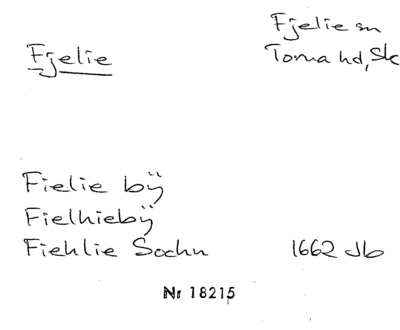 Fjelie
Fjelie sn
Torna hd, Sk
Fielie bÿ
Fielhiebÿ
Fiehlie Sochn 1662 Jb
Nr 18215